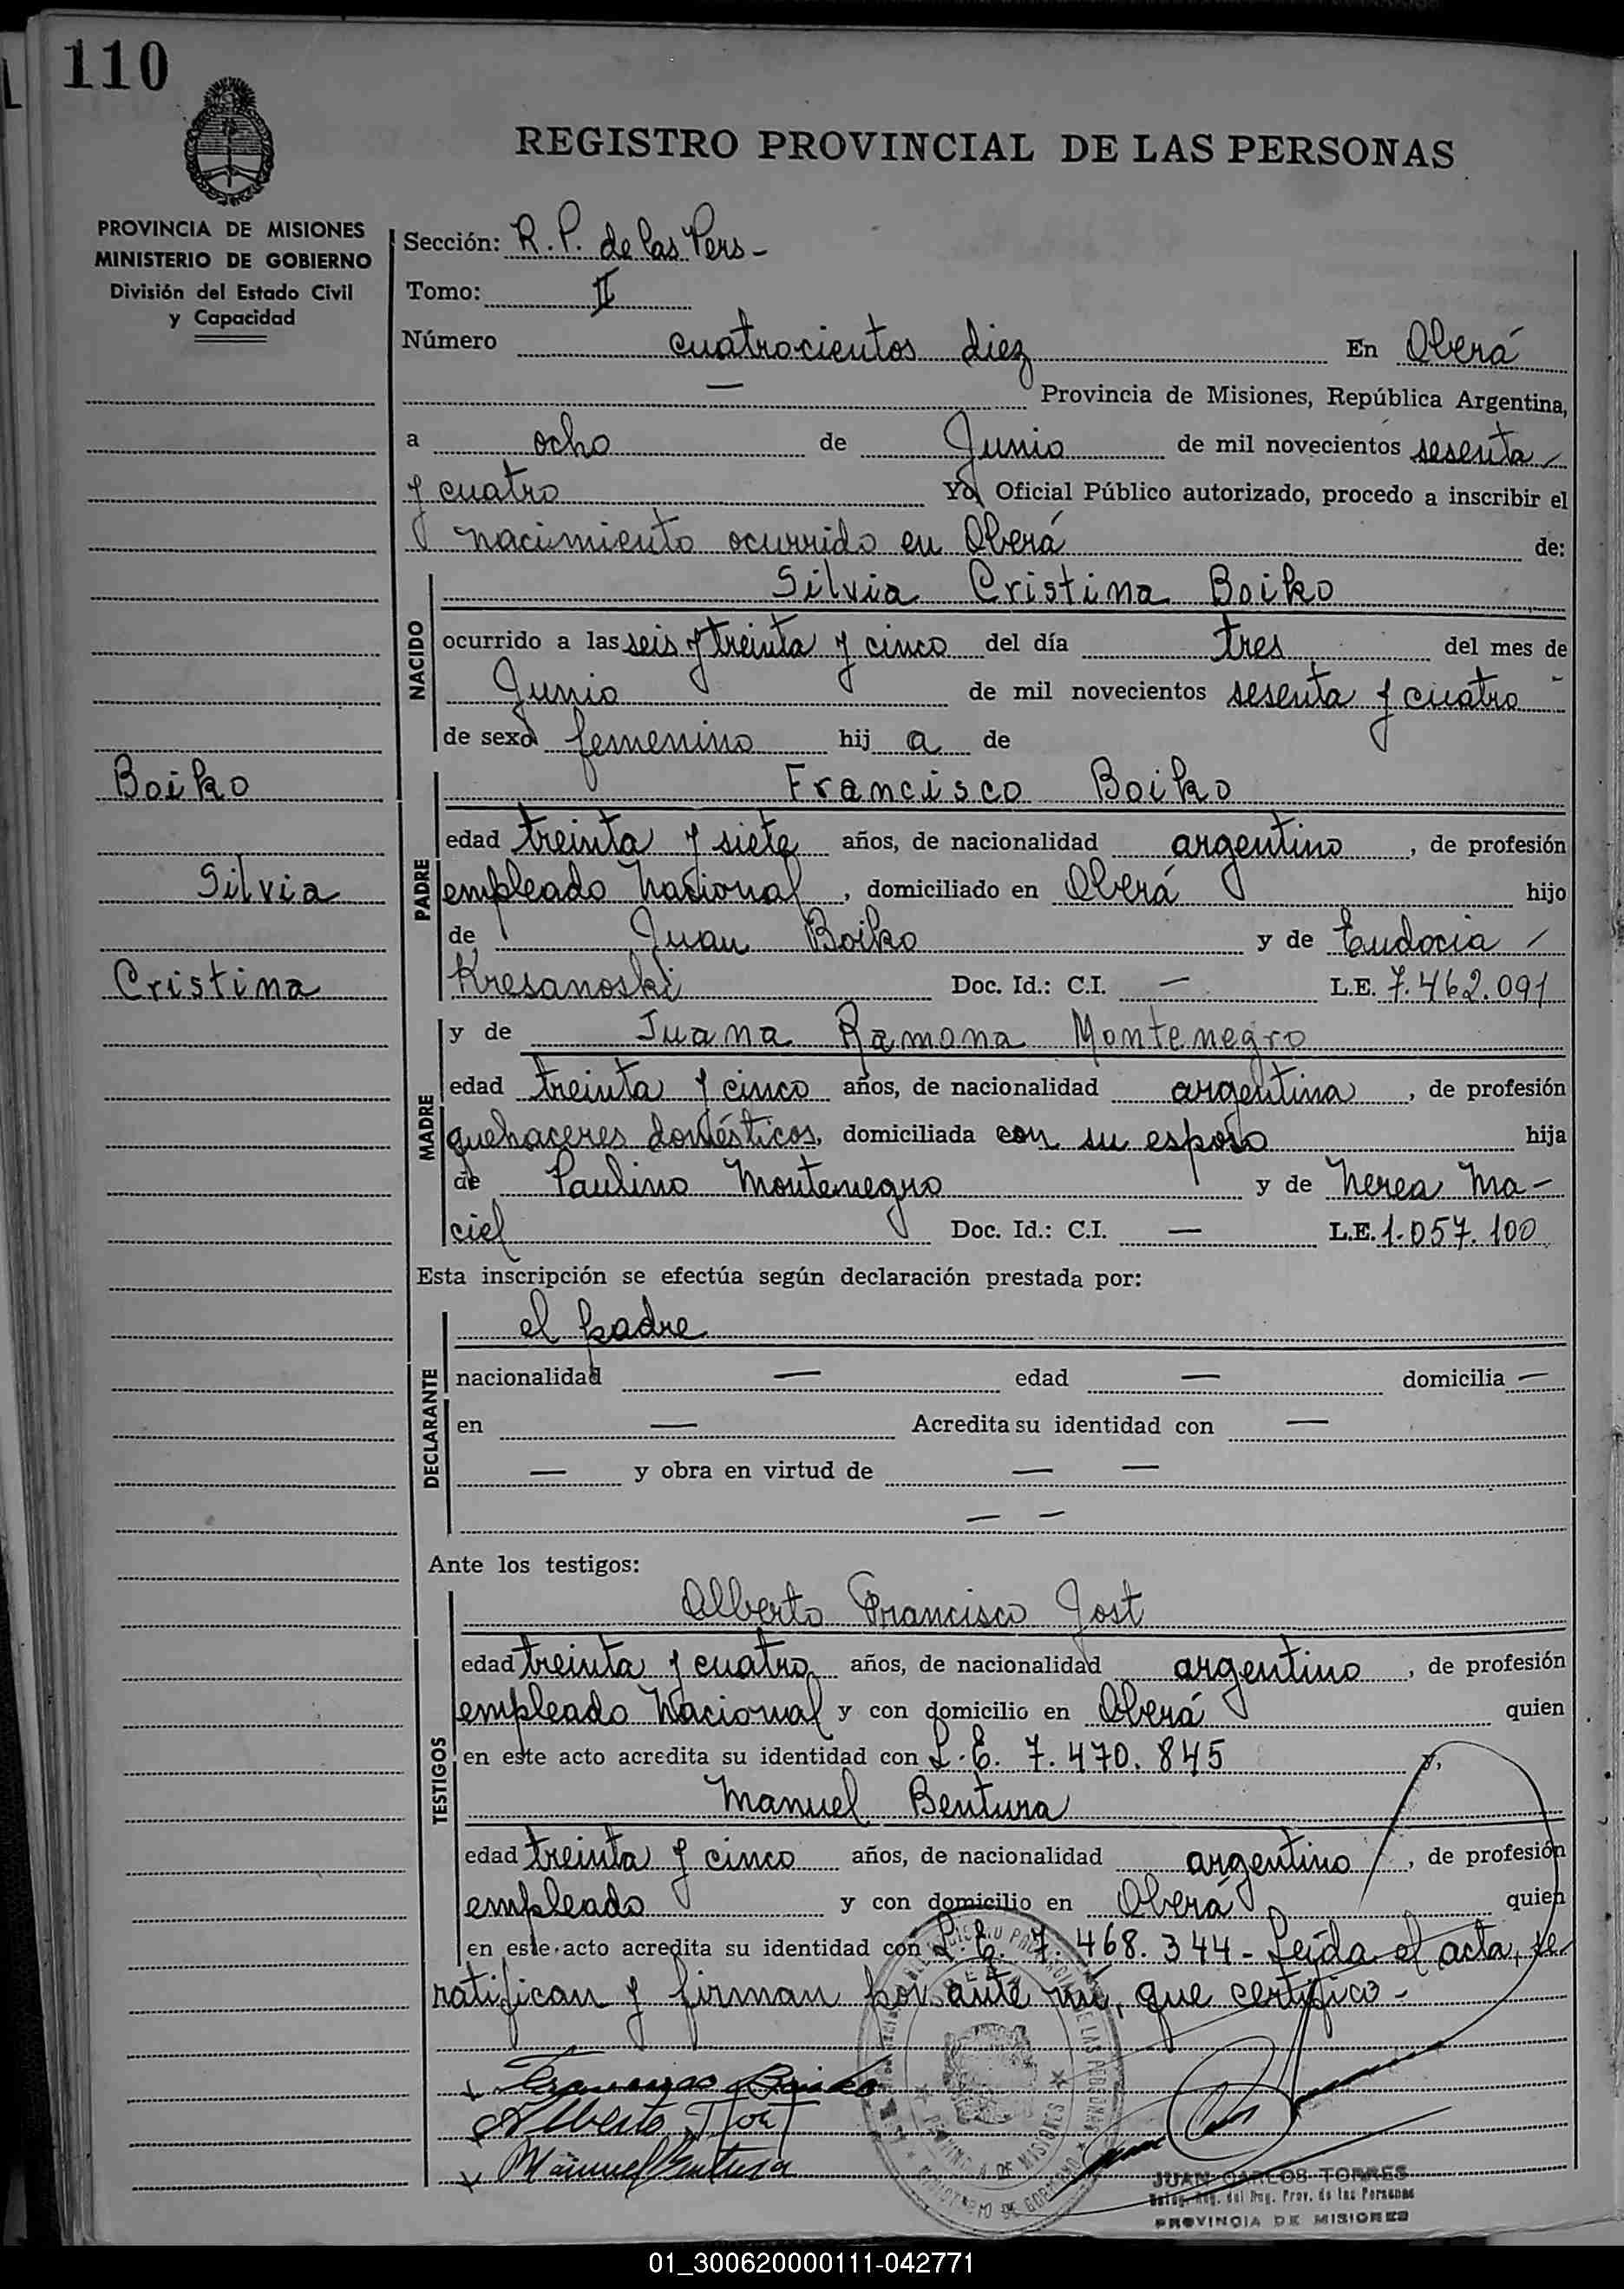 110
REGISTRO PROVINCIAL DE LAS PERSONAS
PROVINCIA DE MISIONES
MINISTERIO DE GOBIERNO
División del Estado Civil
y Capacidad
Sección: R. P. de las Pers -
Tomo: II
Número cuatrocientos diez En Oberá
— Provincia de Misiones, República Argentina,
a ocho de Junio de mil novecientos sesenta
y cuatro Yo Oficial Público autorizado, procedo a inscribir el
nacimiento ocurrido en Oberá de:
NACIDO
Silvia Cristina Boiko
ocurrido a las seis y treinta y cinco del día tres del mes de
Junio de mil novecientos sesenta y cuatro -
de sexo femenino hij a de
Boiko
Silvia
Cristina
PADRE
Francisco Boiko
edad treinta y siete años, de nacionalidad argentino, de profesión
empleado Nacional, domiciliado en Oberá hijo
de Juan Boiko y de Eudocia
Kresanoski Doc. Id.: C.I. — L.E. 7.462.091
MADRE
y de Juana Ramona Montenegro
edad treinta y cinco años, de nacionalidad argentina, de profesión
quehaceres domésticos, domiciliada con su esposo hija
de Paulino Montenegro y de Nerea Ma-
ciel Doc. Id.: C.I. — L.E. 1.057.100
Esta inscripción se efectúa según declaración prestada por:
DECLARANTE
el padre
nacionalidad — edad — domicilia —
en — Acredita su identidad con —
— y obra en virtud de — —
— —
Ante los testigos:
TESTIGOS
Alberto Francisco Jost
edad treinta y cuatro años, de nacionalidad argentino, de profesión
empleado Nacional y con domicilio en Oberá quien
en este acto acredita su identidad con L.E. 7.470.845 y,
Manuel Bentura
edad treinta y cinco años, de nacionalidad argentino, de profesión
empleado y con domicilio en Oberá quien
en este acto acredita su identidad con L.E. 7.468.344 - Leída el acta, se
ratifican y firman por ante mí, que certifico -
Francisco Boiko
Alberto Jost
Manuel Bentura
PROVINCIA DE MISIONES
JUAN CARLOS TORRES
Reg. del Reg. Prov. de las Personas
PROVINCIA DE MISIONES
01_300620000111-042771